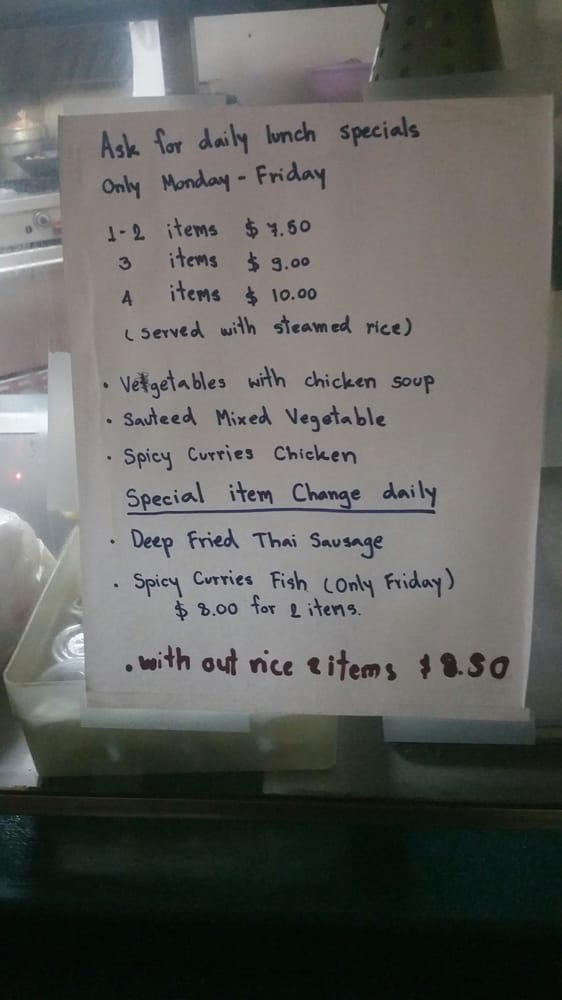 Ask for daily lunch specials
Only Monday - Friday
1-2 items $ 7.50
3 items $ 9.00
4 items $ 10.00
(served with steamed rice)
• Vetgetables with chicken soup
• Sauteed Mixed Vegetable
• Spicy Curries Chicken
Special item Change daily
• Deep Fried Thai Sausage
• Spicy Curries Fish (Only Friday)
$ 8.00 for 2 items.
• with out rice 2 items $ 8.50